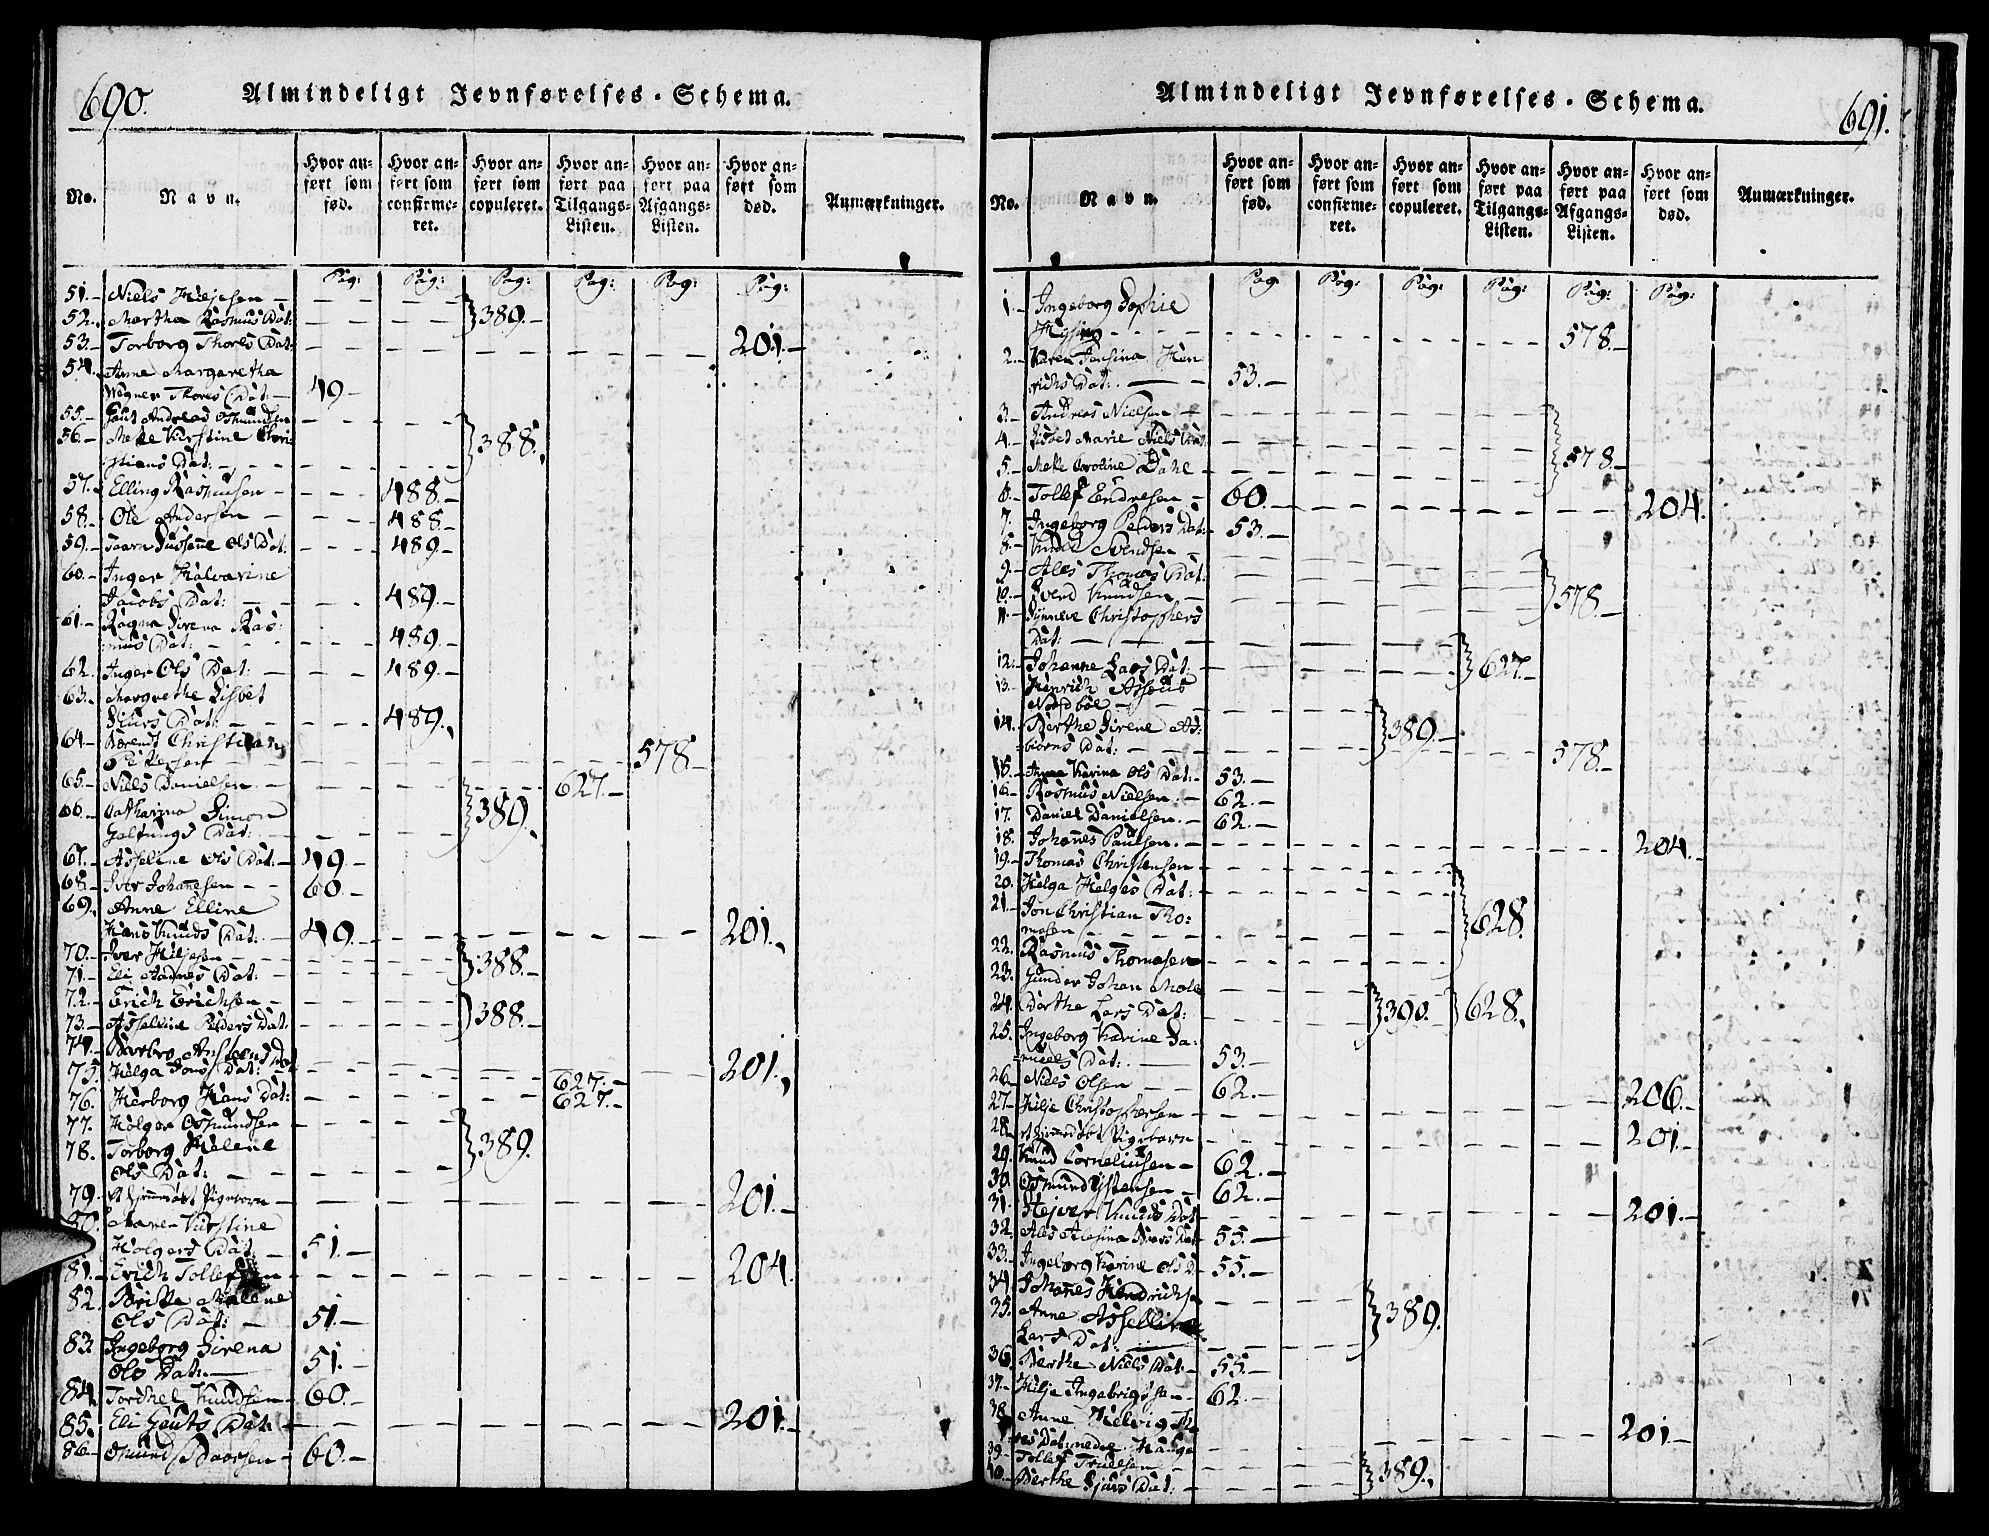 690.
Almindeligt Jevnførelses-Schema.
No.
Navn.
Hvor anført som fød.
Hvor anført som confirmeret.
Hvor anført som copuleret.
Hvor anført paa Tilgangs-Listen.
Hvor anført paa Afgangs-Listen.
Hvor anført som død.
Anmærkninger.
Pag: Pag: Pag: Pag: Pag: Pag:
51. Niels Hiljesen
52. Martha Rasmus Dat: 389.
53. Torborg Thores Dat: 201.
54. Anne Margaretha
Wegner Thores Dat: 49
55. Gaut Andreas Osmundsen
56. Mette Kirstine Chri-
stians Dat: 388.
57. Elling Rasmusen 488.
58. Ole Andersen 488.
59. Taarn Susanne Ols Dat: 489
60. Inger Halvarine
Jacobs Dat: 489.
61. Ragna Sirena Ras:
mus Dat: 489.
62. Inger Ols Dat: 489.
63. Margrethe Lisbet
Siurs Dat: 489.
64. Berendt Christian
Pettersen 578
65. Niels Danielsen 627.
66. Catharina Simon
Galtungs Dat: 389.
67. Asseline Ols Dat: 49.
68. Iver Johannesen 60.
69. Anne Elline
Hans Knuds Dat: 49. 201.
70. Iver Hiljesen
71. Eli Aadnes Dat: 388.
72. Erich Erichsen
73. Asseline Peders Dat: 388.
74. Barbro Anstens Dat 201.
75. Helga Jons Dat: 627.
76. Herborg Hans Dat: 627.
77. Holger Osmundsen
78. Torborg Helene
Ols Dat: 389.
79. Et hjemmedøbt Pigebarn 201.
80. Maren Kirstine
Holgers Dat: 51.
81. Erich Tollefsen 204.
82. Britte Malene
Ols Dat: 51.
83 Ingeborg Sirena
Ols Dat: 51.
84. Torchel Knudsen 60.
85. Eli Gauts Dat: 201.
86. Omund Baarsen 60.
691.
Almindeligt Jevnførelses-Schema.
No.
Navn.
Hvor anført som fød.
Hvor anført som confirmeret.
Hvor anført som copuleret.
Hvor anført paa Tilgangs-Listen.
Hvor anført paa Afgangs-Listen.
Hvor anført som død.
Anmærkninger.
Pag Pag: Pag: Pag: Pag: Pag:
1. Ingeborg Sophie
578.
2. Karen Jonsina Hen
richs Dat: 53.
3. Andreas Nielsen
4. Lisbet Marie Niels Dat
5. Mette Caroline Dahl 578.
6. Tollef Endresen 60. 204.
7. Ingeborg Peders Dat: 53.
8. Knud Svendsen
9. Ales Thomas Dat:
10. Svend Knudsen 578.
11. Synneve Christophers
Dat:
12. Johanne Lars Dat: 627.
13. Henrich Asseus
Nordbøe
14. Berthe Sirene As:
biørns Dat: 389. 578.
15. Anna Karina Ols Dat: 53.
16. Rasmus Nielsen 62.
17. Daniel Danielsen. 62.
18. Johannes Paulsen. 204.
19. Thomas Christensen
20. Helga Helges Dat:
21. Jon Christian Tho:
masen 628.
22. Rasmus Thomasen
23. Gunder Johan Mole
24. Dorthe Lars Dat: 390. 628.
25. Ingeborg Karine Sa:
muels Dat: 53.
26. Niels Olsen 62.
27 Hilje Christophersen 206.
28. et hjemmedøbt Pigebarn 201.
29. Knud Corneliusen 62.
30. Osmund Ystensen 62.
31. Knuds Dat 201.
32. Ales Alesina Niels Dat 55.
33. Ingeborg Karine Ols D. 55.
34. Johannes Hendrichsen
35. Anne Assellin
Lars Dat: 389.
36. Berthe Niels Dat: 55.
37. Hilje Ingebrigtsen 62.
38 Anne Helvig
201.
39. Tollef Truelsen
40. Berthe Sjurs Dat: 389.